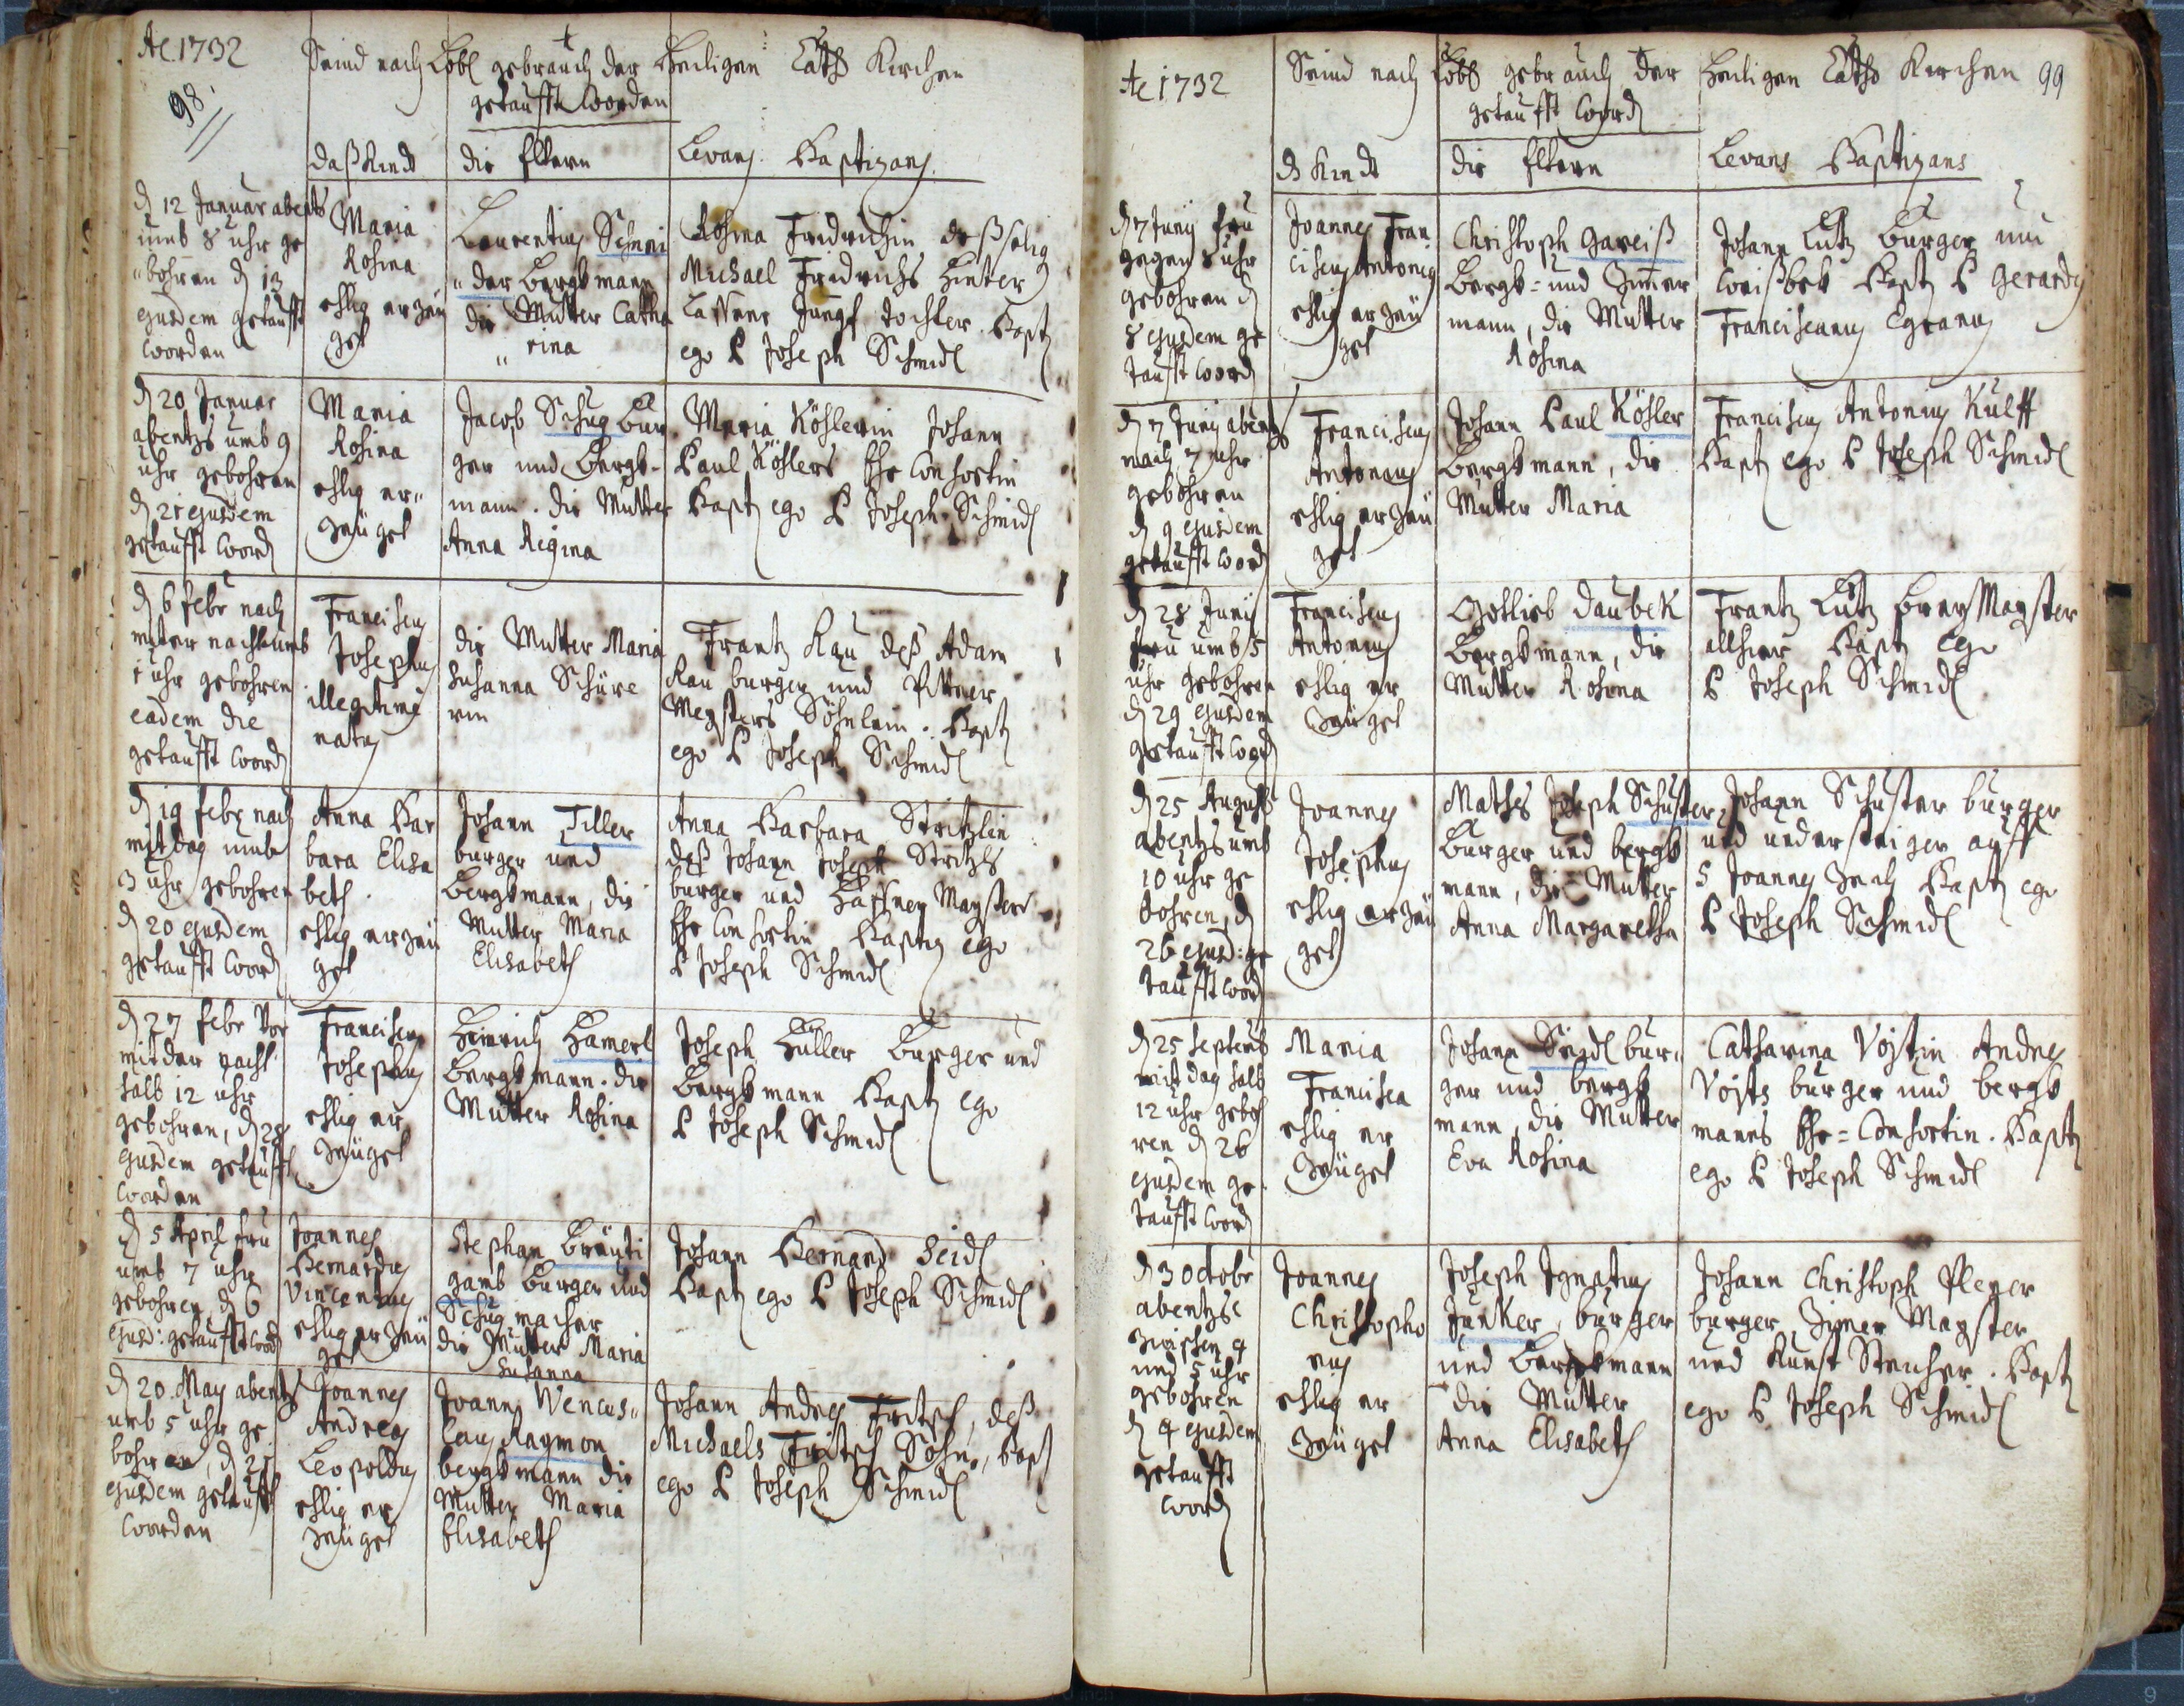 Ae 1732
Seind nach Löbl gebrauch der Heiligen Cath Kirchen
98.
getaufft worden
daß Kindt die Eltern Levans. Baptizans.
d 12 Januar abents
umb 8 uhr ge
bohren d 13
ejusdem getaufft
worden
Maria
Rosina
ehlig erzeü
get
Laurentius Schnei
der Bergkmann
die Mutter Catha
rina
Rosina Fridrichin deß selig
Michael Fridrichs hinter
Laßene Jungf tochter. Bapt
ego P Joseph Schmidl
d 20 Januar
abents umb 9
uhr gebohren
d 21 ejusdem
getaufft word
Maria
Rosina
ehlig er
zeüget
Jacob Schug Bur
ger und Bergk-
mann. die Mutter
Anna Regina
Maria Köhlerin Johann
Paul Köhlers Ehe Consortin
Bapt ego P Joseph Schmidl
d 6 febr nach
miter nacht umb
1 uhr gebohren
eadem die
getaufft word
Franciscus
Josephus
illegitime
natus
die Mutter Maria
Susanna Schüre
rin
Frantz Rau deß Adam
Rau burger und
Meysters Söhnlein. Bapt
ego P Joseph Schmidl
d 19 febr nach
mitdag umb
3 uhr gebohren
d 20 ejusdem
getaufft word
Anna Bar
bara Elisa
beth.
ehlig erzeü
get
Johann Tiller
burger und
Bergkmann, die
Mutter Maria
Elisabeth
Anna Barbara Stritzlin
deß Johann Joseph Stritzls
burger und Haffner Meysters
Ehe Consortin Baptiz ego
P Joseph Schmidl
d 27 febr Vor
mitder nacht
halb 12 uhr
gebohren, d 28
ejusdem getaufft
worden
Franciscus
Josephus
ehlig er
zeüget
Heinrich Hamerl
Bergkmann. die
Mutter Rosina
Joseph Huller Burger und
Bergkmann Bapt ego
P Joseph Schmidl
d 5 April fru
umb 7 uhr
gebohren d 6
ejusd: getaufft word
Joannes
Bernardus
Vincentius
ehlig erzeü
get
Stephan Breüti
gamb Burger und
Schugmacher
die Mutter Maria
Susanna
Johann Bernard Seidl
Bapt ego P Joseph Schmidl
d 20. May abents
umb 5 uhr ge
bohren, d 21
ejusdem getaufft
worden
Joannes
Andreas
Leopoldus
ehlig er
zeüget
Joann Wences
laus Raymon
bergkmann die
Mutter Maria
Elisabeth
Johann Andres Fritsch, deß
Michaels Fritsch Sohn, Bapt
ego P Joseph Schmidl
Ae 1732
Seind nach Löbl gebrauch der Heiligen Catho Kirchen 99
getaufft word
ds Kindt die Eltern Levans Baptizans
d 7 Junij fru
gegen 8 uhr
gebohren d
8 ejusdem ge
taufft word
Joannes Fran
ciscus Antonius
ehlig erzeü
get
Christoph Gareiß
Bergk- und Zimer
mann, die Mutter
Rosina
Johann Lutz Burger
Bapt P Gerardus
Franciscanus Egranus
d 7 Junij abents
nach 7 uhr
gebohren
d 9 ejusdem
getaufft word
Franciscus
Antonius
ehlig erzeü
get
Johann Paul Köhler
Bergkmann, die
Mutter Maria
Franciscus Antonius Kulff
Bapt ego P Joseph Schmidl
d 28 Junij
fru umb 5
uhr gebohren
d 29 ejusdem
getaufft word
Franciscus
Antonius
ehlig er
zeüget
Gotlieb Daubek
Bergkmann, die
Mutter Rosina
Frantz Lutz Brey Meyster
allhier Bapt ego
P Joseph Schmidl
d 25 August
abents umb
10 uhr ge
bohren, d
26 ejusd: ge
taufft word
Joannes
Josephus
ehlig erzeü
get
Mathes Joseph Schuster
Burger und bergk
mann, die Mutter
Anna Margaretha
Johann Schuster burger
und understeiger auff
S Joannes Zech Bapt ego
P Joseph Schmidl
d 25 Septemb
mitdag halb
12 uhr geboh
ren d 26
ejusdem ge
taufft word
Maria
Francisca
ehlig er
zeüget
Johann Seidl bur
ger und bergk
mann, die Mutter
Eva Rosina
Catharina Vojtzin Andres
Vojts burger und bergk
manns Ehe=Consortin. Bapt
ego P Joseph Schmidl
d 3 Octobr
abents
zwischen 4
und 5 uhr
gebohren
d 4 ejusdem
getaufft
word
Joannes
Christopho
rus
ehlig er
zeüget
Joseph Ignatius
Junker, burger
und Bergkmann
die Mutter
Anna Elisabeth
Johann Christoph Pleyer
burger, Zimer Meyster
und Kunst Steicher. Bapt
ego P Joseph Schmidl